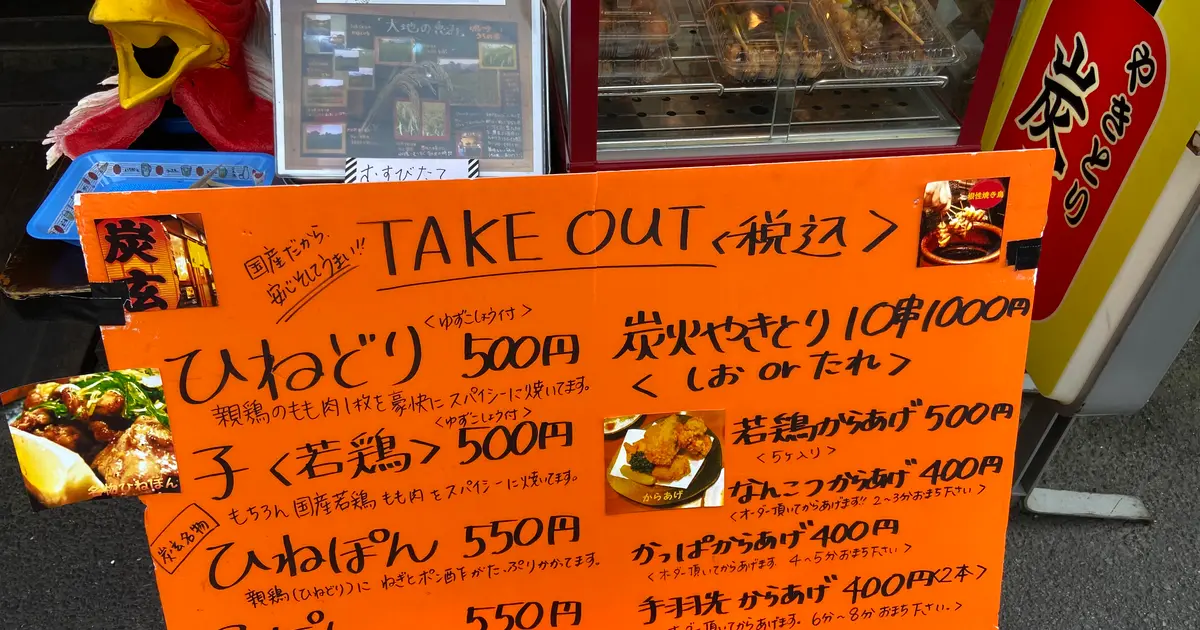 大地の
むすびたて
やきとり
炭
炭玄
国産だから、
安心そしてうまい!!
TAKE OUT <税込>
根性焼き鳥
<ゆずこしょう付>
ひねどり 500円
親鶏のもも肉1枚を豪快にスパイシーに焼いてます。
<ゆずこしょう付>
子<若鶏> 500円
もちろん国産若鶏もも肉をスパイシーに焼いてます。
炭玄名物
ひねぽん 550円
親鶏(ひねどり)にねぎとポン酒をがたっぷりかかてます。
名物ひねぽん
ぽん 550円
炭火やきとり 10串1000円
< しお or たれ >
からあげ
若鶏からあげ 500円
<5ヶ入り>
なんこつからあげ 400円
<オーダー頂いてからあげます!! 2~3分おまち下さい>
かっぱからあげ 400円
<オーダー頂いてからあげます 4~5分おまち下さい>
手羽先からあげ 400円<2本>
オーダー頂いてからあげます。6分~8分おまち下さい。>